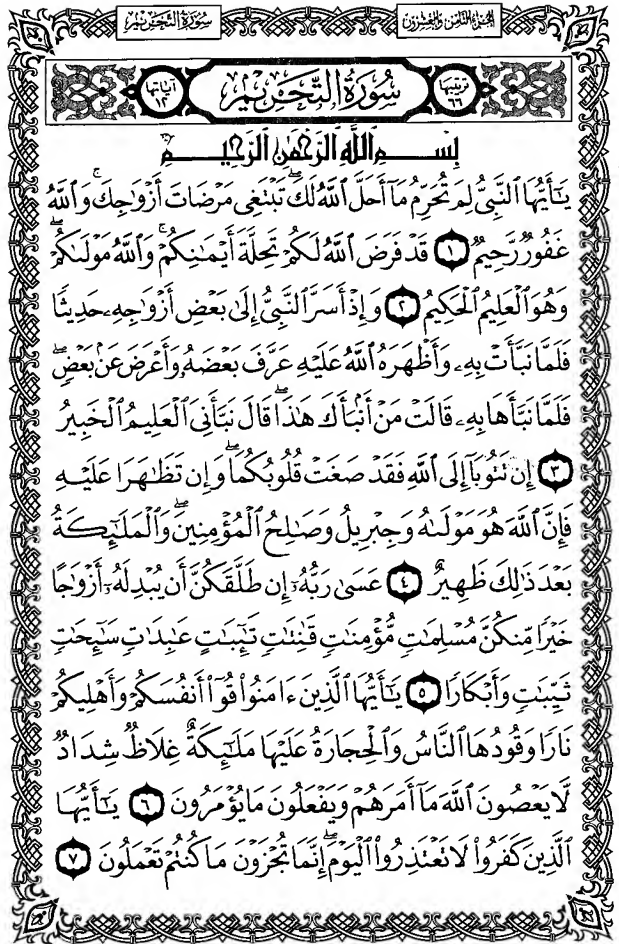 سُورَةُ التَّحْرِيمِ
الجزء الثامن والعشرون
ترتيبها ٦٦
سُورَةُ التَّحْرِيمِ
آياتها ١٢
بِسْمِ ٱللَّهِ ٱلرَّحْمَٰنِ ٱلرَّحِيمِ
يَٰٓأَيُّهَا ٱلنَّبِىُّ لِمَ تُحَرِّمُ مَآ أَحَلَّ ٱللَّهُ لَكَ ۖ تَبْتَغِى مَرْضَاتَ أَزْوَٰجِكَ ۚ وَٱللَّهُ
غَفُورٌ رَّحِيمٌ ١ قَدْ فَرَضَ ٱللَّهُ لَكُمْ تَحِلَّةَ أَيْمَٰنِكُمْ ۚ وَٱللَّهُ مَوْلَىٰكُمْ ۖ
وَهُوَ ٱلْعَلِيمُ ٱلْحَكِيمُ ٢ وَإِذْ أَسَرَّ ٱلنَّبِىُّ إِلَىٰ بَعْضِ أَزْوَٰجِهِۦ حَدِيثًا
فَلَمَّا نَبَّأَتْ بِهِۦ وَأَظْهَرَهُ ٱللَّهُ عَلَيْهِ عَرَّفَ بَعْضَهُۥ وَأَعْرَضَ عَنۢ بَعْضٍ ۖ
فَلَمَّا نَبَّأَهَا بِهِۦ قَالَتْ مَنْ أَنۢبَأَكَ هَٰذَا ۖ قَالَ نَبَّأَنِىَ ٱلْعَلِيمُ ٱلْخَبِيرُ
٣ إِن تَتُوبَآ إِلَى ٱللَّهِ فَقَدْ صَغَتْ قُلُوبُكُمَا ۖ وَإِن تَظَٰهَرَا عَلَيْهِ
فَإِنَّ ٱللَّهَ هُوَ مَوْلَىٰهُ وَجِبْرِيلُ وَصَٰلِحُ ٱلْمُؤْمِنِينَ ۖ وَٱلْمَلَٰٓئِكَةُ
بَعْدَ ذَٰلِكَ ظَهِيرٌ ٤ عَسَىٰ رَبُّهُۥٓ إِن طَلَّقَكُنَّ أَن يُبْدِلَهُۥٓ أَزْوَٰجًا
خَيْرًا مِّنكُنَّ مُسْلِمَٰتٍ مُّؤْمِنَٰتٍ قَٰنِتَٰتٍ تَٰٓئِبَٰتٍ عَٰبِدَٰتٍ سَٰٓئِحَٰتٍ
ثَيِّبَٰتٍ وَأَبْكَارًا ٥ يَٰٓأَيُّهَا ٱلَّذِينَ ءَامَنُوا۟ قُوٓا۟ أَنفُسَكُمْ وَأَهْلِيكُمْ
نَارًا وَقُودُهَا ٱلنَّاسُ وَٱلْحِجَارَةُ عَلَيْهَا مَلَٰٓئِكَةٌ غِلَاظٌ شِدَادٌ
لَّا يَعْصُونَ ٱللَّهَ مَآ أَمَرَهُمْ وَيَفْعَلُونَ مَا يُؤْمَرُونَ ٦ يَٰٓأَيُّهَا
ٱلَّذِينَ كَفَرُوا۟ لَا تَعْتَذِرُوا۟ ٱلْيَوْمَ ۖ إِنَّمَا تُجْزَوْنَ مَا كُنتُمْ تَعْمَلُونَ ٧